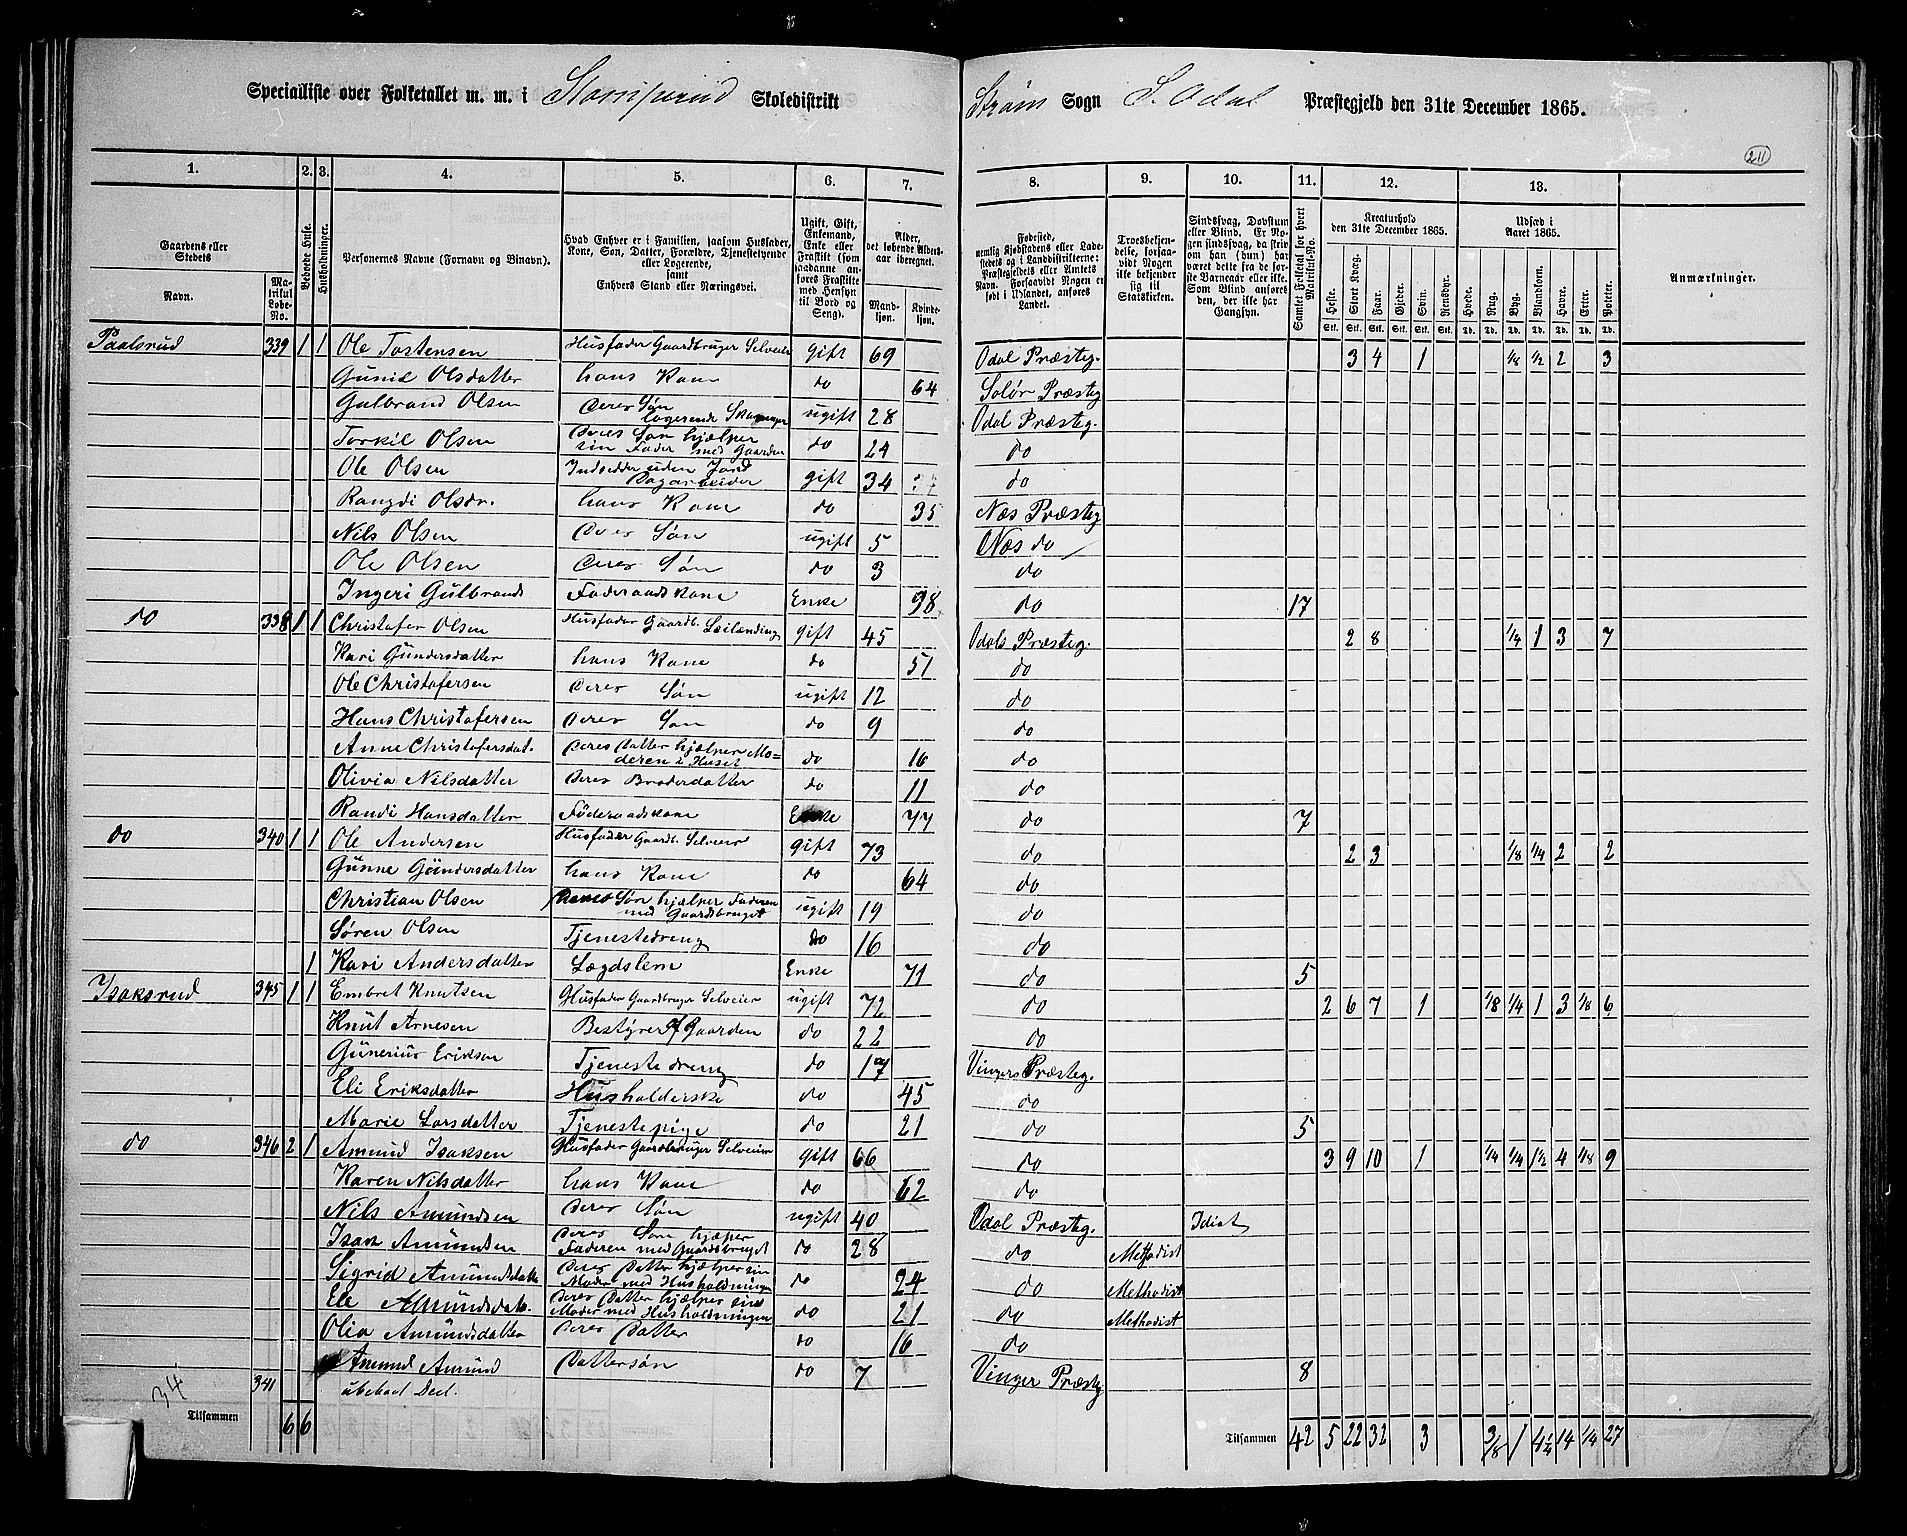 211
Specialliste over Folketallet m. m. i Stomperud Skoledistrikt Strøm Sogn S. Odal Præstegjeld den 31te December 1865.
1. 2. 3. 4. 5. 6. 7. 8. 9. 10. 11. 12. 13.
Gaardens eller Stedets
Navn.
Matrikul Løbe-No.
Beboede Huse.
Husholdninger.
Personernes Navne (Fornavn og Binavn).
Hvad Enhver er i Familien, saasom Husfader, Kone, Søn, Datter, Forældre, Tjenestetyende eller Logerende, samt Enhvers Stand eller Næringsvei.
Ugift, Gift, Enkemand, Enke eller Fraskilt (som saadanne anføres Fraskilte med Hensyn til Bord og Seng).
Alder, det løbende Aldersaar iberegnet.
Mandkjøn. Kvindekjøn.
Fødested, nemlig Kjøbstadens eller Ladestedets og i Landdistrikterne: Præstegjeldets eller Amtets Navn. Forsaavidt Nogen er født i Udlandet, anføres Landet.
Troesbekjendelse, forsaavidt Nogen ikke bekjender sig til Statskirken.
Sindssvag, Døvstum eller Blind. Er Nogen sindssvag, da skriv om han (hun) har været dette fra de første Barneaar eller ikke. Som Blind anføres den, der ikke har Gangsyn.
Samlet Folketal for hvert Matrikul-No.
Kreaturhold den 31te December 1865.
Heste. Stort Kvæg. Faar. Gjeder. Svin. Rensdyr.
Udsæd i Aaret 1865.
Hvede. Rug. Byg. Blandkorn. Havre. Erter. Poteter.
Anmærkninger.
Paalsrud 339 1 1 Ole Tostensen Husfader Gaardbruger Selveier gift 69 Odal Præsteg. 3 4 1 1/8 1/2 2 3
Gunild Olsdatter hans Kone do 64 Solør Præsteg
Gulbrand Olsen deres Søn logerende ugift 28 Odal Præsteg.
Torkil Olsen deres Søn hjælper sin Fader med Gaarden do 24 do
Ole Olsen Indsedder uden Jord Dagarbeider gift 34 do
Rangdi Olsdr. hans Kone do 35 Næs Præsteg
Nils Olsen deres Søn ugift 5 Næs do
Ole Olsen deres Søn do 3 do
Ingeri Gulbrands Føderaadskone Enke 98 do 17
do 338 1 1 Christofer Olsen Husfader Gaardb. Leilænding gift 45 Odals Præsteg. 2 8 1/4 1 3 7
Kari Gundersdatter hans Kone do 51 do
Ole Christofersen deres Søn ugift 12 do
Hans Christofersen deres Søn do 9 do
Anne Christofersdat. deres Datter hjælper Moderen i Huset do 16 do
Olivia Nilsdatter deres Broderdatter do 11 do
Randi Hansdatter Føderaadskone Enke 77 do 7
do 340 1 1 Ole Andersen Husfader Gaardb. Selveier gift 73 do 2 3 1/8 1/4 2 2
Gunne Gundersdatter hans Kone do 64 do
Christian Olsen deres Søn hjælper Faderen med Gaardsbruget ugift 19 do
Søren Olsen Tjenestedreng do 16 do
1 Kari Andersdatter Lægdslem Enke 71 do 5
Isaksrud 345 1 1 Embret Knutsen Husfader Gaardbruger Selveier ugift 72 do 2 6 7 1 1/8 1/4 1 3 1/8 6
Knut Arnesen Bestyrer af Gaarden do 22 do
Gunerius Eriksen Tjenestedreng do 17 Vingers Præsteg.
Eli Eriksdatter Husholderske do 45 do
Marie Larsdatter Tjenestepige do 21 do 5
do 346 2 1 Amund Isaksen Husfader Gaardbruger Selveier gift 66 do 3 9 10 1 1/4 1/4 1 1/2 4 1/8 9
Karen Nilsdatter hans Kone do 62 do
Nils Amundsen deres Søn ugift 40 Odal Præsteg. Idiot
Isak Amundsen deres Søn hjælper Faderen med Gaardsbruget do 28 do Methodist
Sigrid Amundsdatter deres Datter hjælper sin Moder med Husholdningen do 24 do Methodist
Eli Amundsdatr. deres Datter hjælper sin Moder med Husholdningen do 21 do Methodist
Olia Amundsdatter deres Datter do 16 do
Amund Amund Dattersøn do 7 Vinger Præsteg 8
341 ubeboet Deel.
34
Tilsammen 6 6 Tilsammen 42 5 22 32 3 3/8 1 4 1/4 14 1/4 27